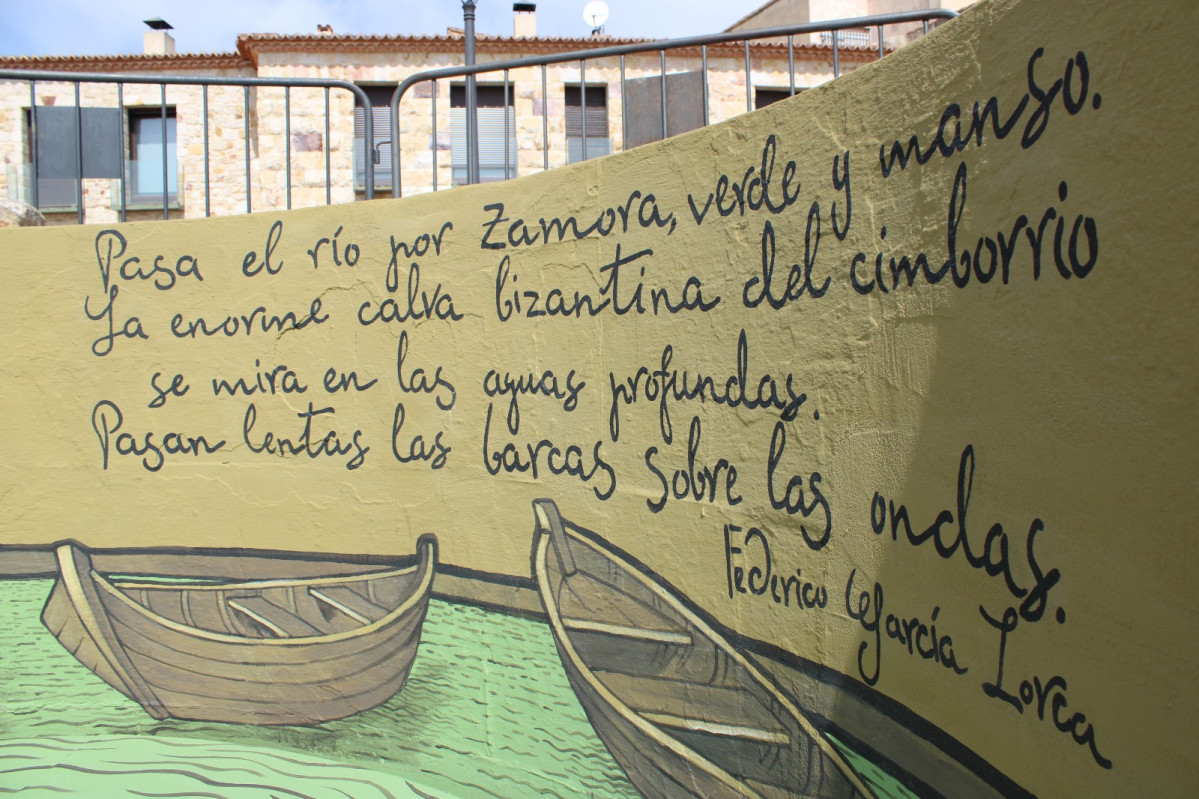 Pasa el río por Zamora, verde y manso.
La enorme calva bizantina del cimborrio
se mira en las aguas profundas.
Pasan lentas las barcas sobre las ondas.
Federico García Lorca